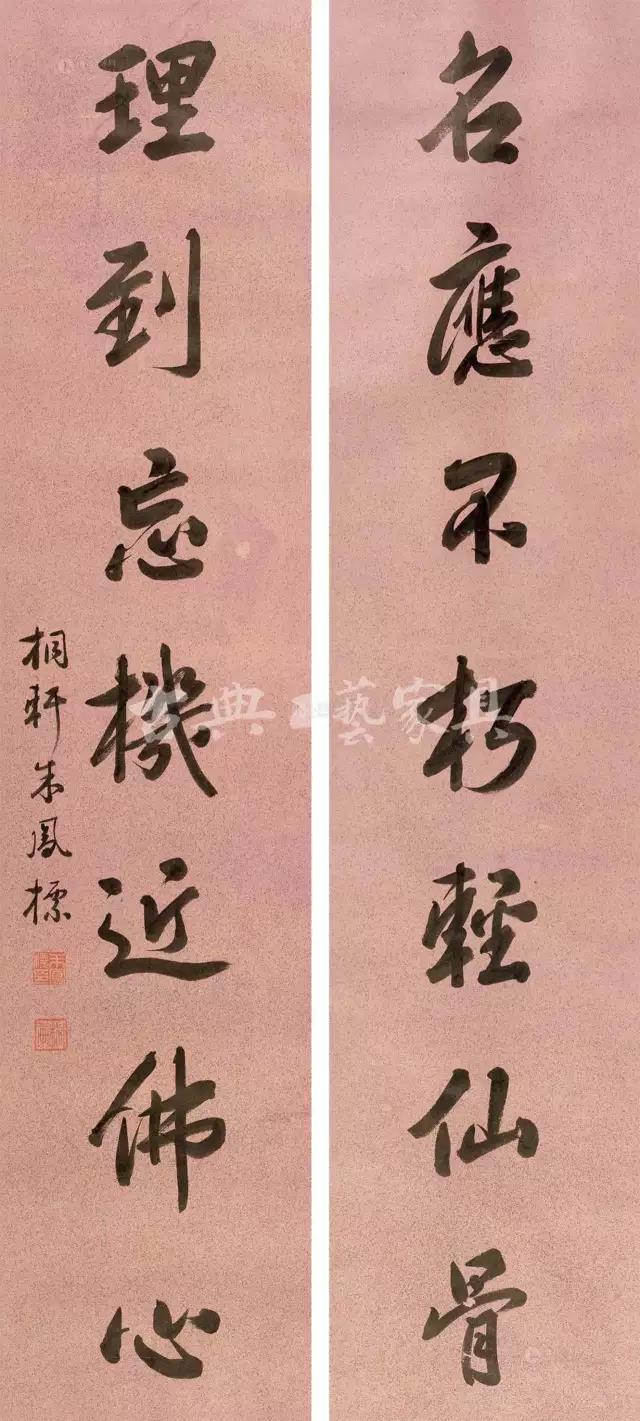 名應不朽輕仙骨
理到忘機近佛心
桐軒朱鳳標
古典工藝家具